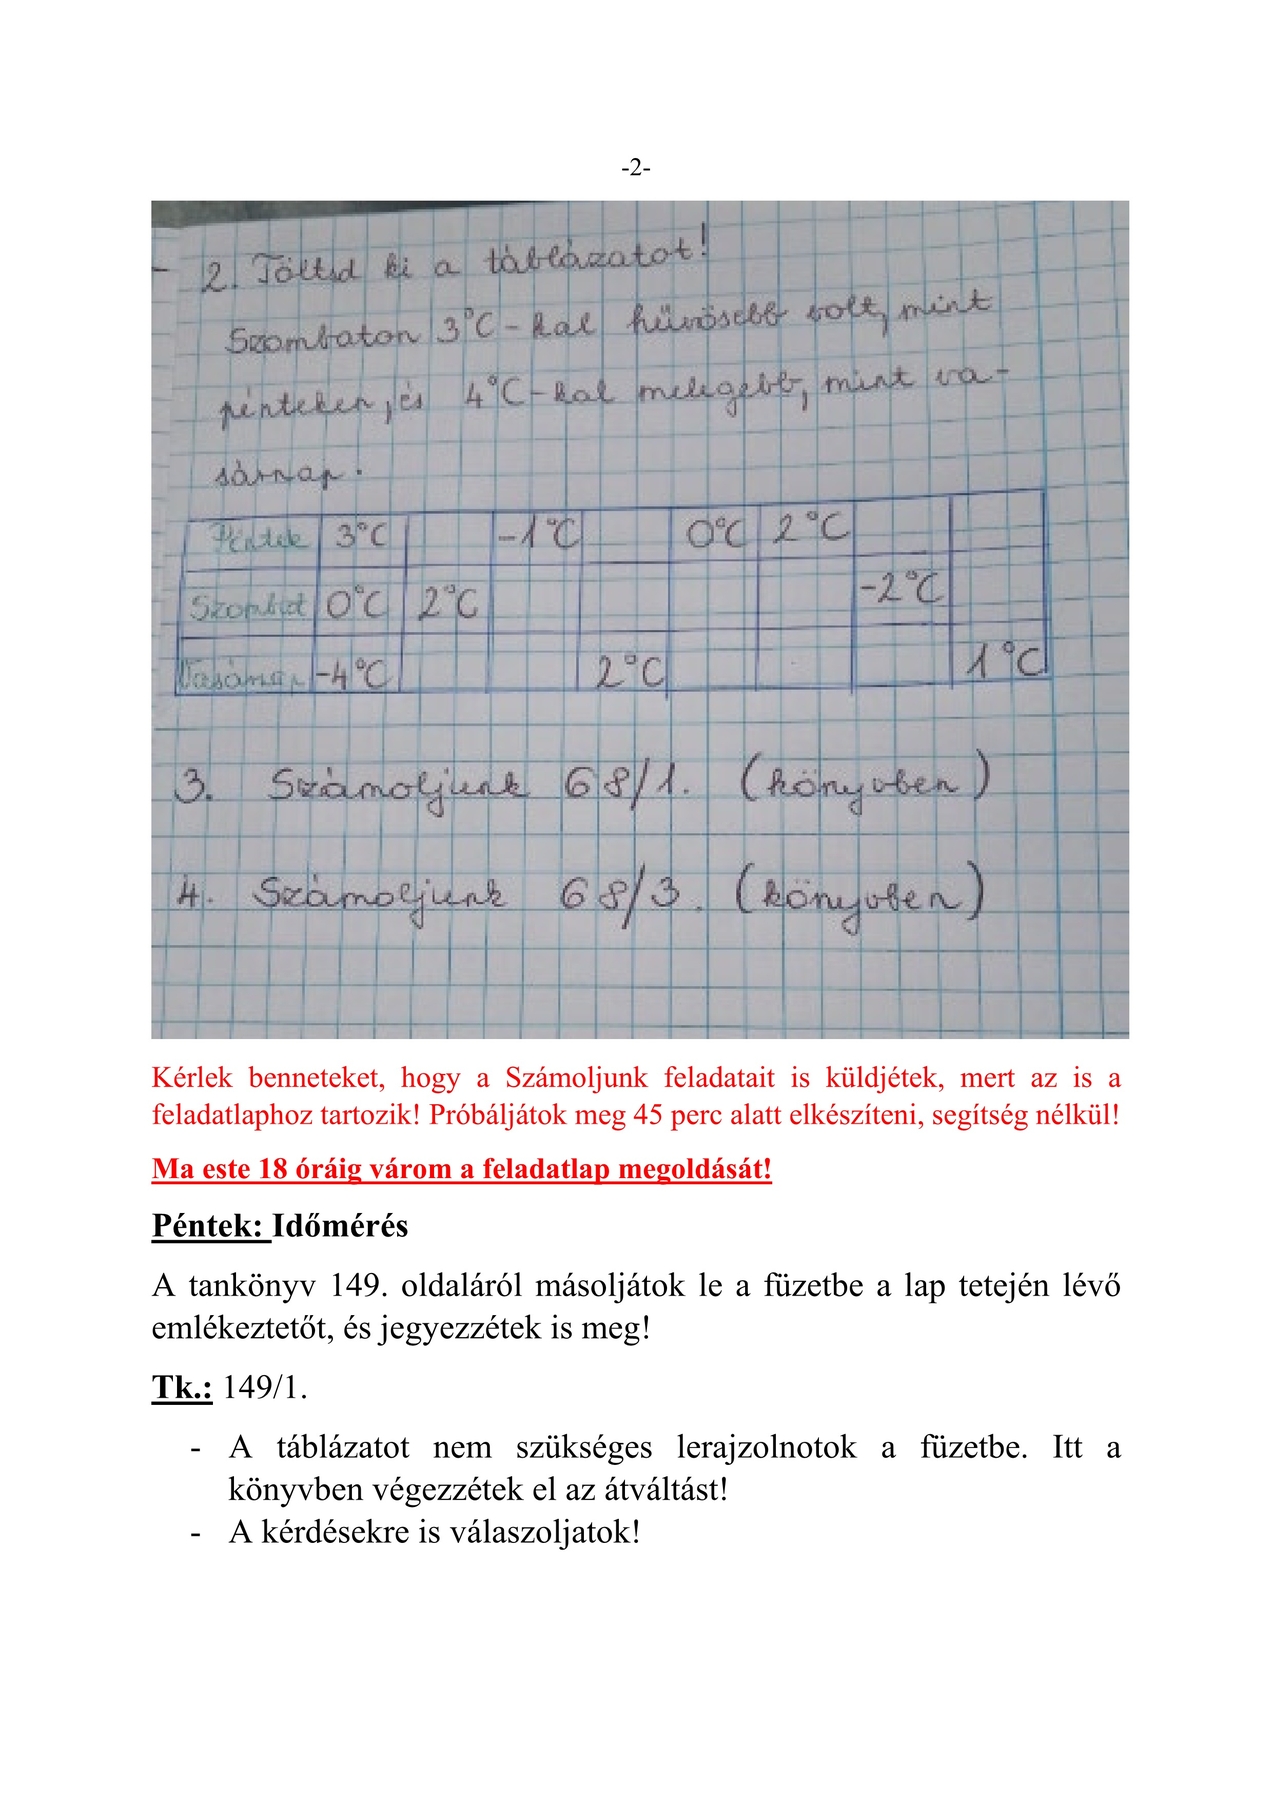 -2-
2. Töltsd ki a táblázatot!
Szombaton 3°C-kal hűvösebb volt, mint
pénteken, és 4°C-kal melegebb, mint va-
sárnap.
Péntek 3°C -1°C 0°C 2°C
Szombat 0°C 2°C -2°C
Vasárnap -4°C 2°C 1°C
3. Számoljunk 68/1. (könyvben)
4. Számoljunk 68/3. (könyvben)
Kérlek benneteket, hogy a Számoljunk feladatait is küldjétek, mert az is a
feladatlaphoz tartozik! Próbáljátok meg 45 perc alatt elkészíteni, segítség nélkül!
Ma este 18 óráig várom a feladatlap megoldását!
Péntek: Időmérés
A tankönyv 149. oldaláról másoljátok le a füzetbe a lap tetején lévő
emlékeztetőt, és jegyezzétek is meg!
Tk.: 149/1.
- A táblázatot nem szükséges lerajzolnotok a füzetbe. Itt a
könyvben végezzétek el az átváltást!
- A kérdésekre is válaszoljatok!